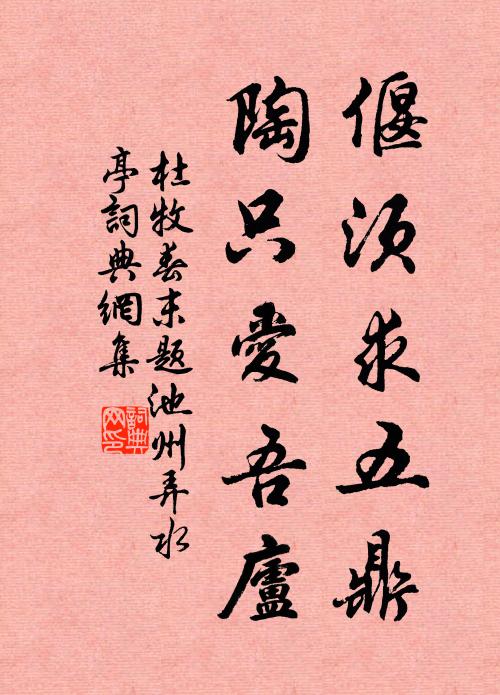 偃須求五鼎
陶只愛吾廬
杜牧春末題池州弄水
亭詞典網集
詞典
网印